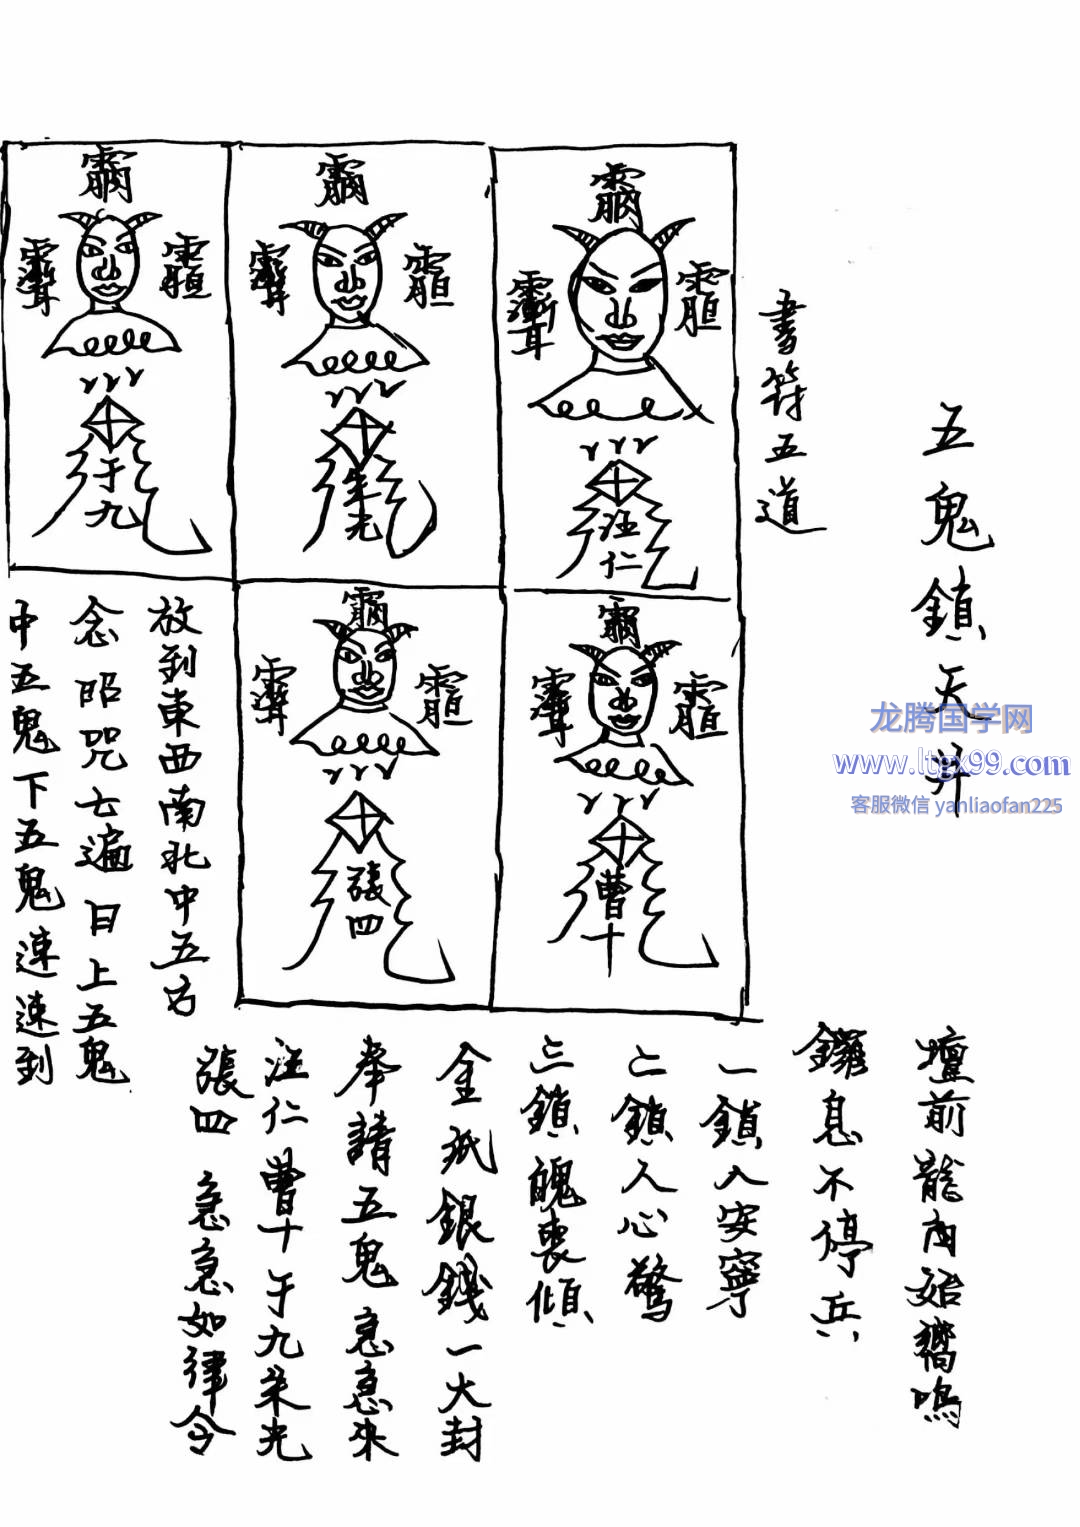 五鬼鎖天井
書符五道
汪仁
朱光
于九
曹十
張四
放到東西南北中五方
念咒七遍日上五鬼
中五鬼下五鬼速速到
壇前龍內始嚮鳴
鑼息不停兵
一鎖入安寧
二鎖人心驚
三鎖魄喪傾
金紙銀錢一大封
奉請五鬼急急來
汪仁曹十于九朱光
張四 急急如律令
龙腾国学网
www.ltgx99.com
客服微信 yanliaofan225